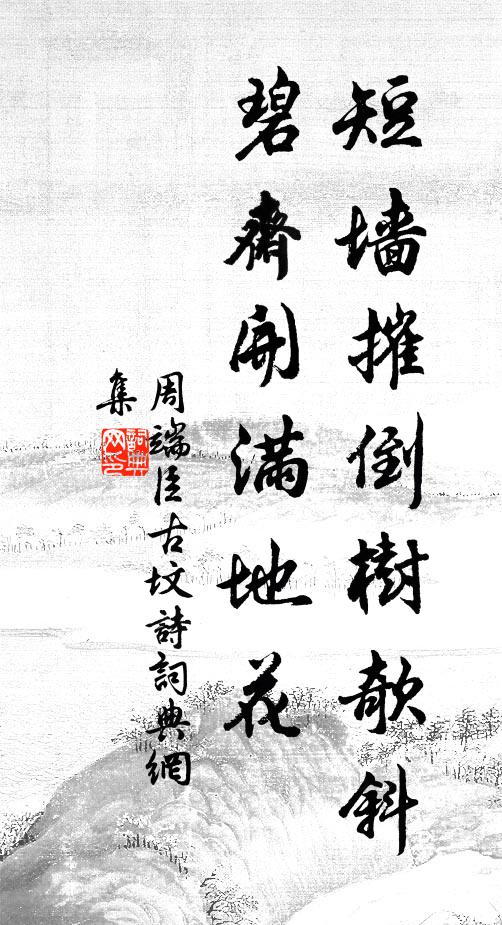 短墻摧倒樹欹斜
碧齋開滿地花
周端臣古坟詩詞典網
集
詩詞典網